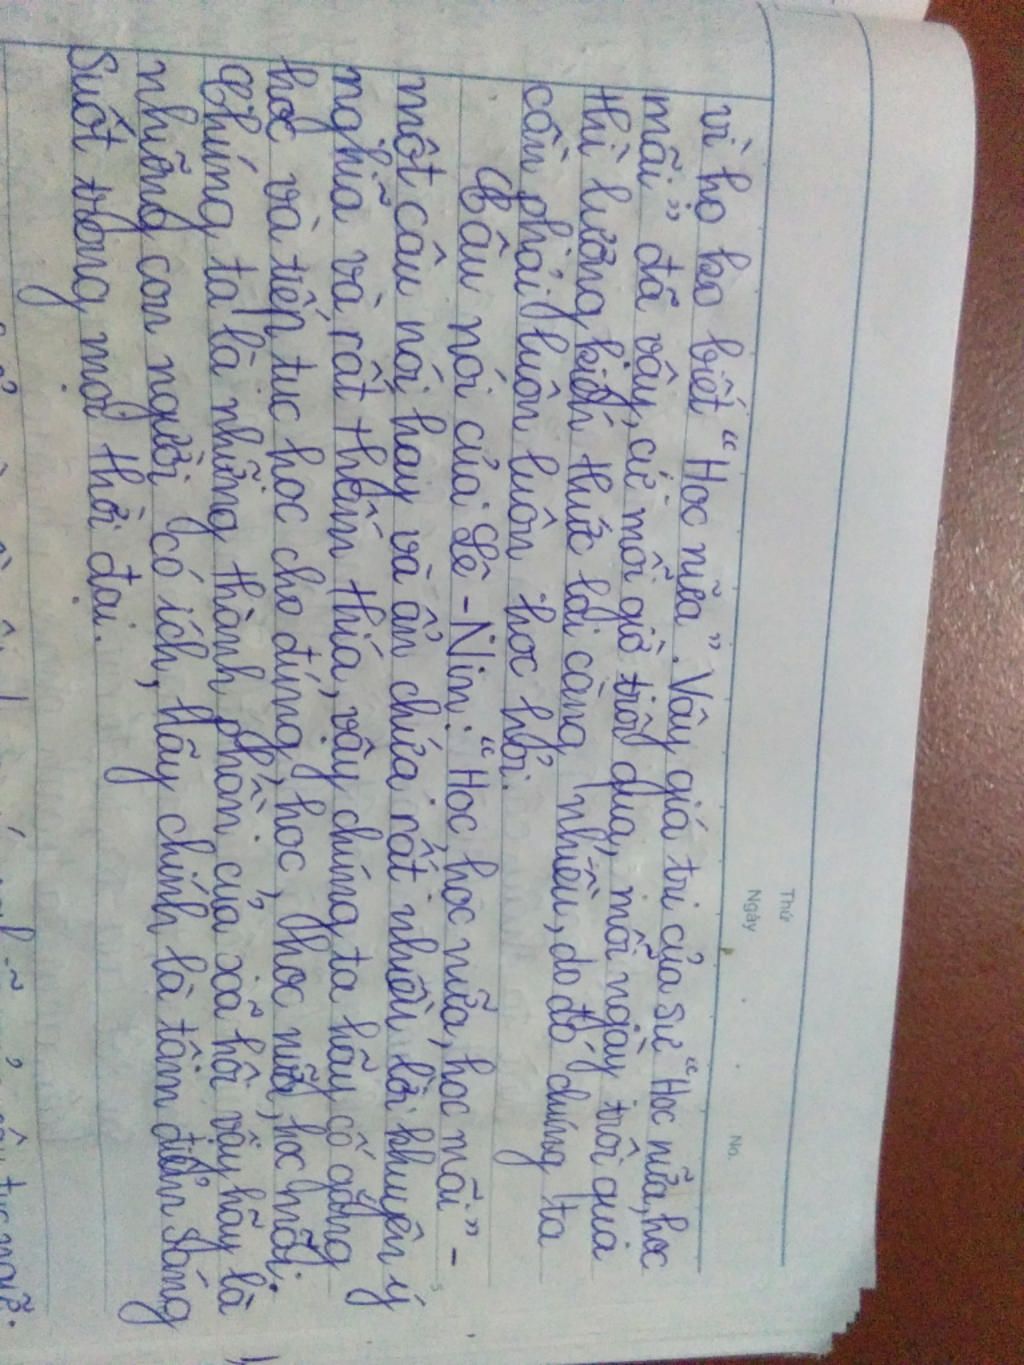 Thứ
Ngày
No.
vì họ ko biết "Học nữa". Vậy giá trị của sự "Học nữa, học
mãi" đã vậy, cứ mỗi giờ trôi qua, mỗi ngày trôi qua
thì lượng kiến thức lại càng nhiều, do đó chúng ta
cần phải luôn luôn học hỏi.
Câu nói của Lê-Nin: "Học, học nữa, học mãi" -
một câu nói hay và ẩn chứa rất nhiều lời khuyên ý
nghĩa và rất thấm thía, vậy chúng ta hãy cố gắng
học và tiếp tục học cho đúng, học, học nữa, học mãi.
Chúng ta là những thành phần của xã hội vậy hãy là
những con người có ích, hãy chính là tâm điểm sáng
Suốt trong mọi thời đại.